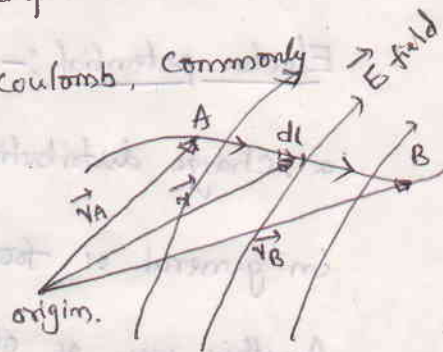 Coulomb, commonly
E field
A
dl
B
r
rA
rB
origin.